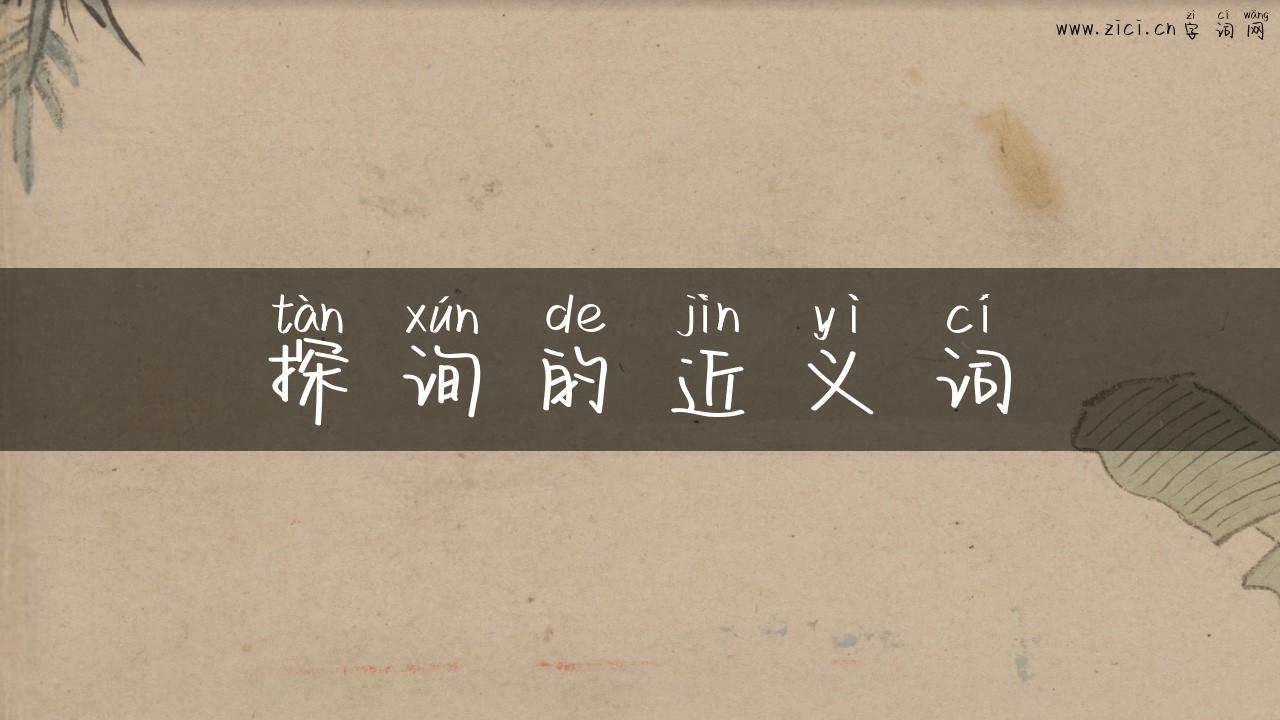 zì cí wǎng
www.zici.cn 字词网
tàn xún de jìn yì cí
探询的近义词